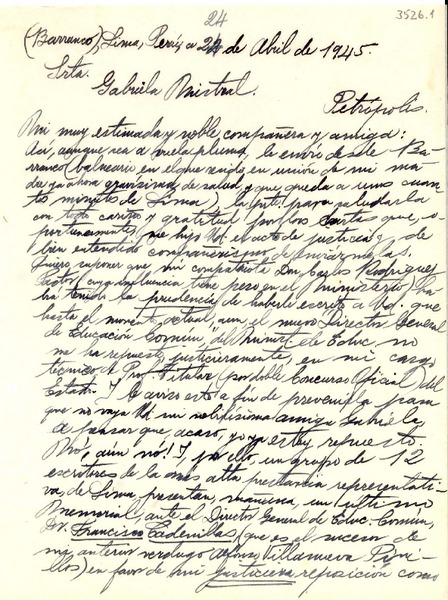 24
3526.1
(Barranco), Lima, Perú, a 24 de Abril de 1945.
Srta.
Gabriela Mistral.
Petrópolis.
Mi muy estimada y noble compañera y amiga:
Así, aunque sea a vuela pluma, le envío desde Ba-
rranco (balneario en el que resido en unión de mi ma-
dre ya ahora gravísima de salud, y que queda a unos cuan-
tos minutos de Lima) la pte. para saludarla
con todo cariño y gratitud por las cartas que, o-
portunamente, me hizo Ud. el acto de justicia, de
bien entendido compañerismo de enviármelas.
Quiero suponer que mi compatriota Don Carlos Rodríguez
Pastor (cuya influencia tiene peso en el Ministerio) ha-
ya tenido la prudencia de haberle escrito a Ud. que
hasta el momento actual, aun el nuevo Director General
de Educación Común, del Minist. de Educ. no
me ha repuesto, justicieramente, en mi cargo
técnico de Prof. Titular (por doble Concurso Oficial) del
Estado. I le aviso esto a fin de prevenirla para
que no vaya Ud. mi nobilísima amiga Gabriela
a pensar que acaso, yo ya estoy repuesto.
No, aún no! I por ello, un grupo de 12
escritores de la más alta prestancia representati-
va, de Lima, presentan, mañana, un último
Memorial, ante el Director General de Educ. Común,
Dr. Francisco Cadenillas (que es el sucesor de
mi anterior verdugo Alfonso Villanueva Pini-
llos) en favor de mi justiciera reposición como